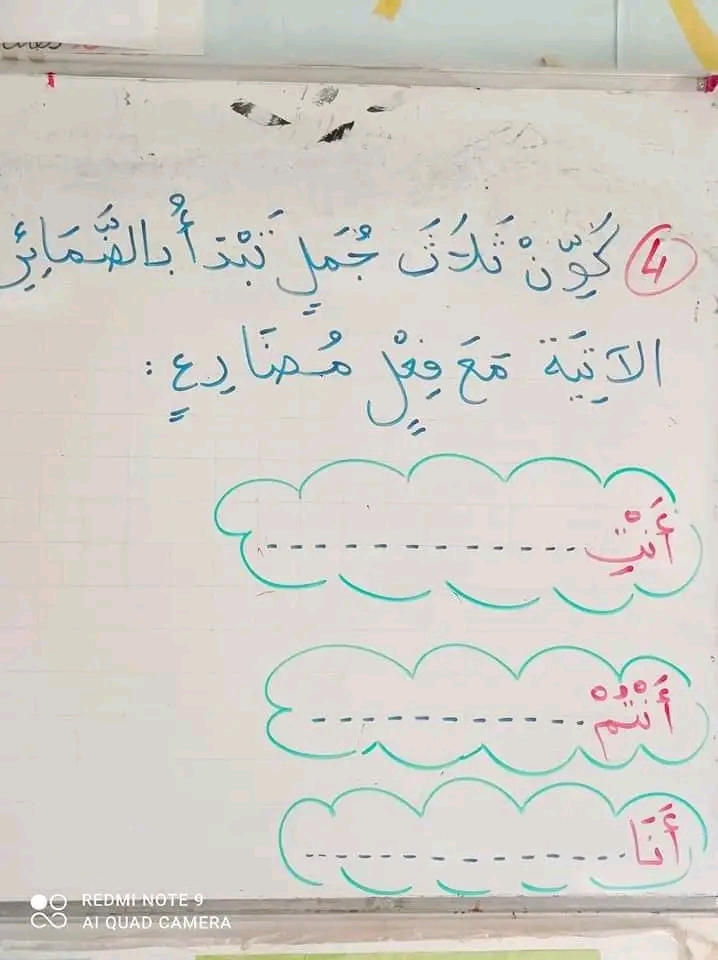 ④ كَوِّنْ ثَلَاثَ جُمَلٍ تَبْدَأُ بِالضَّمَائِرِ
الآتِيَة مَعَ فِعْلٍ مُضَارِعٍ :
أَنْتِ ............
أَنْتُمْ ............
أَنَا ............
REDMI NOTE 9
AI QUAD CAMERA